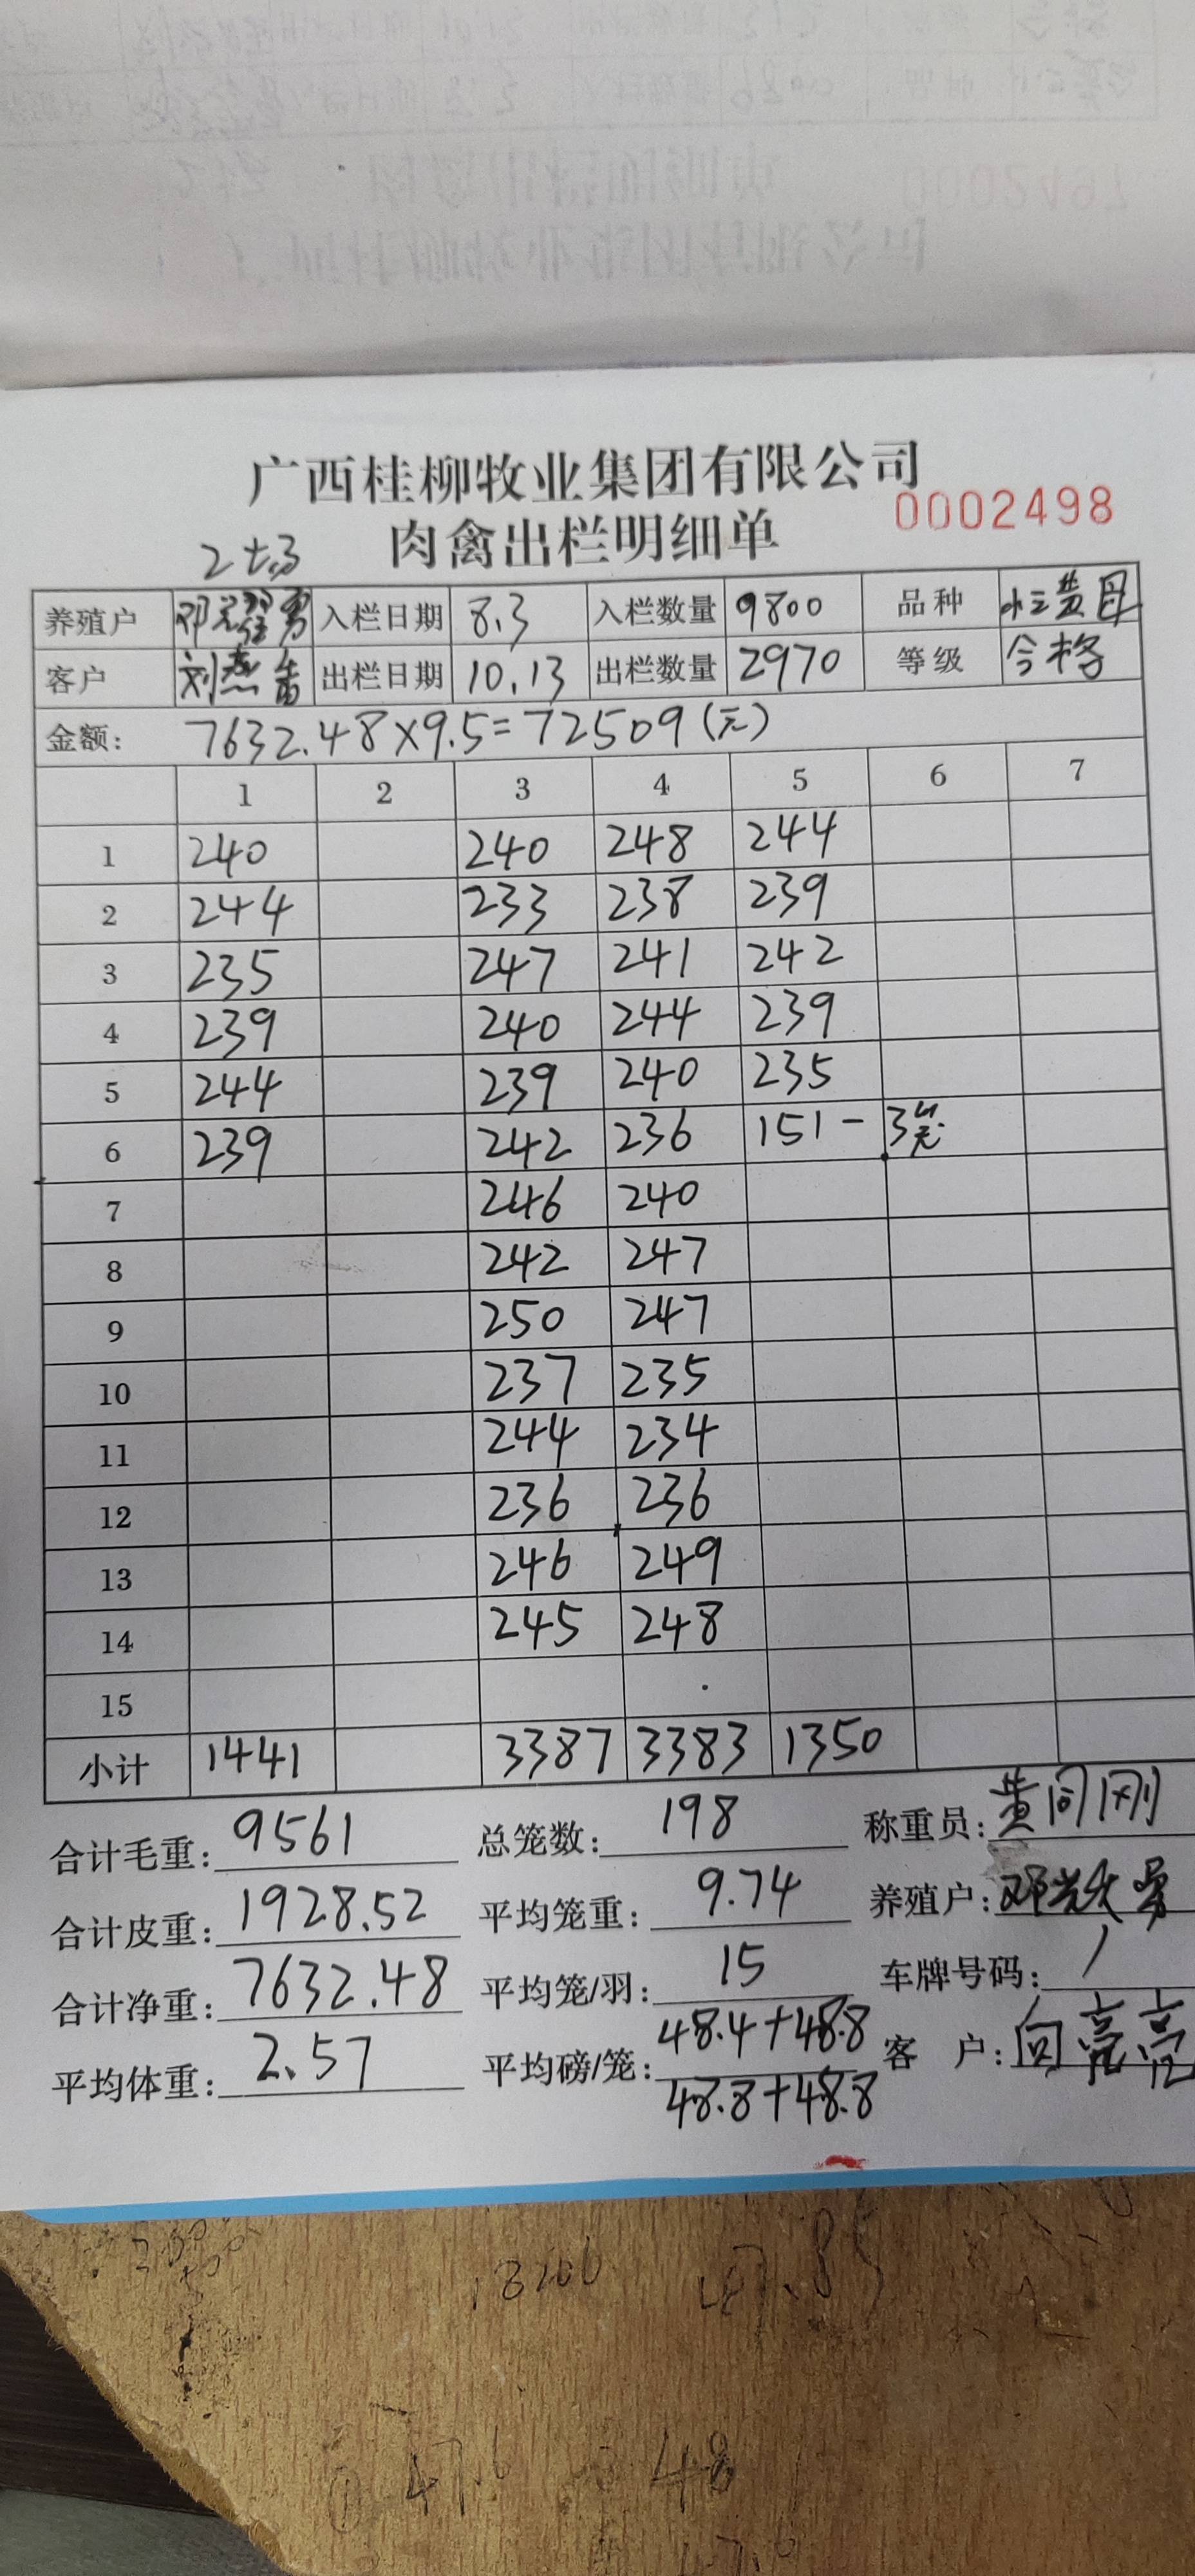 广西桂柳牧业集团有限公司
0002498
肉禽出栏明细单
养殖户 入栏日期 8.3 入栏数量 9800 品种
客户 出栏日期 10.13 出栏数量 2970 等级 合格
金额: 7632.48×9.5=72509(元)
1 2 3 4 5 6 7
1 240 240 248 244
2 244 233 238 239
3 235 247 241 242
4 239 240 244 239
5 244 239 240 235
6 239 242 236 151-3笼
7 246 240
8 242 247
9 250 247
10 237 235
11 244 234
12 236 236
13 246 249
14 245 248
15
小计 1441 3387 3383 1350
合计毛重: 9561 总笼数: 198 称重员: 黄同刚
合计皮重: 1928.52 平均笼重: 9.74 养殖户:
合计净重: 7632.48 平均笼/羽: 15 车牌号码: /
平均体重: 2.57 平均磅/笼: 48.4+48.8 客户: 向亮亮
48.8+48.8